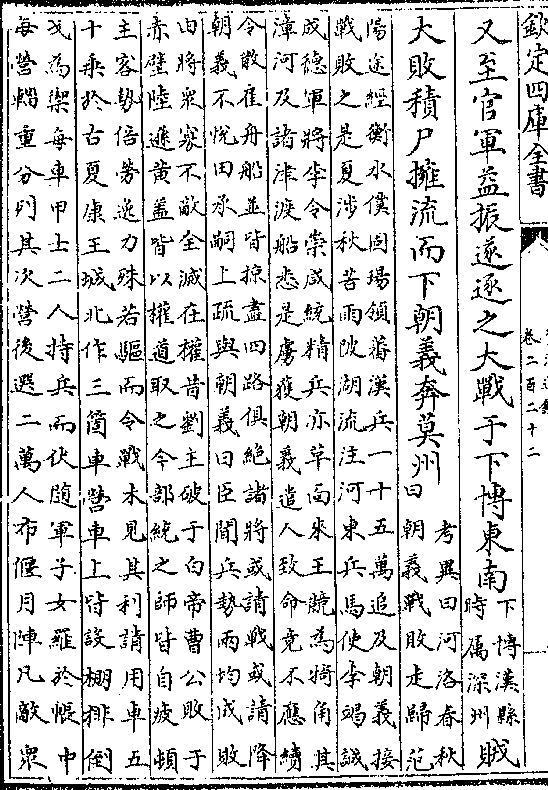 欽定四庫全書
卷二百二十二
又至官軍益振遂逐之大戰于下博東南下博漢縣
時屬深州賊
大敗積尸擁流而下朝義奔莫州考異曰河洛春秋
曰朝義戰敗走歸范
陽途經衡水僕固瑒領蕃漢兵一十五萬追及朝義接
戰敗之是夏涉秋苦雨陂湖流注河東兵馬使李竭誠
成德軍將李令崇咸統精兵亦革面來王競為犄角其
漳河及諸津渡船悉是虜獲朝義遣人致命竟不應續
令散在舟船並皆掠盡四路俱絕諸將或請戰或請降
朝義不悅田承嗣上疏與朝義曰臣聞兵勢兩均成敗
由將眾寡不敵全滅在權昔劉主破于白帝曹公敗于
赤壁陸遜黃蓋皆以權道取之今部統之師皆自疲頓
主客勢倍勞逸力殊若驅而令戰未見其利請用車五
十乘於古夏康王城北作三箇車營車上皆設棚排倒
戈為禦每車甲士二人持兵而伏隨軍子女羅於帳中
每營輜重分列其次營後選二萬人布偃月陣凡敵眾